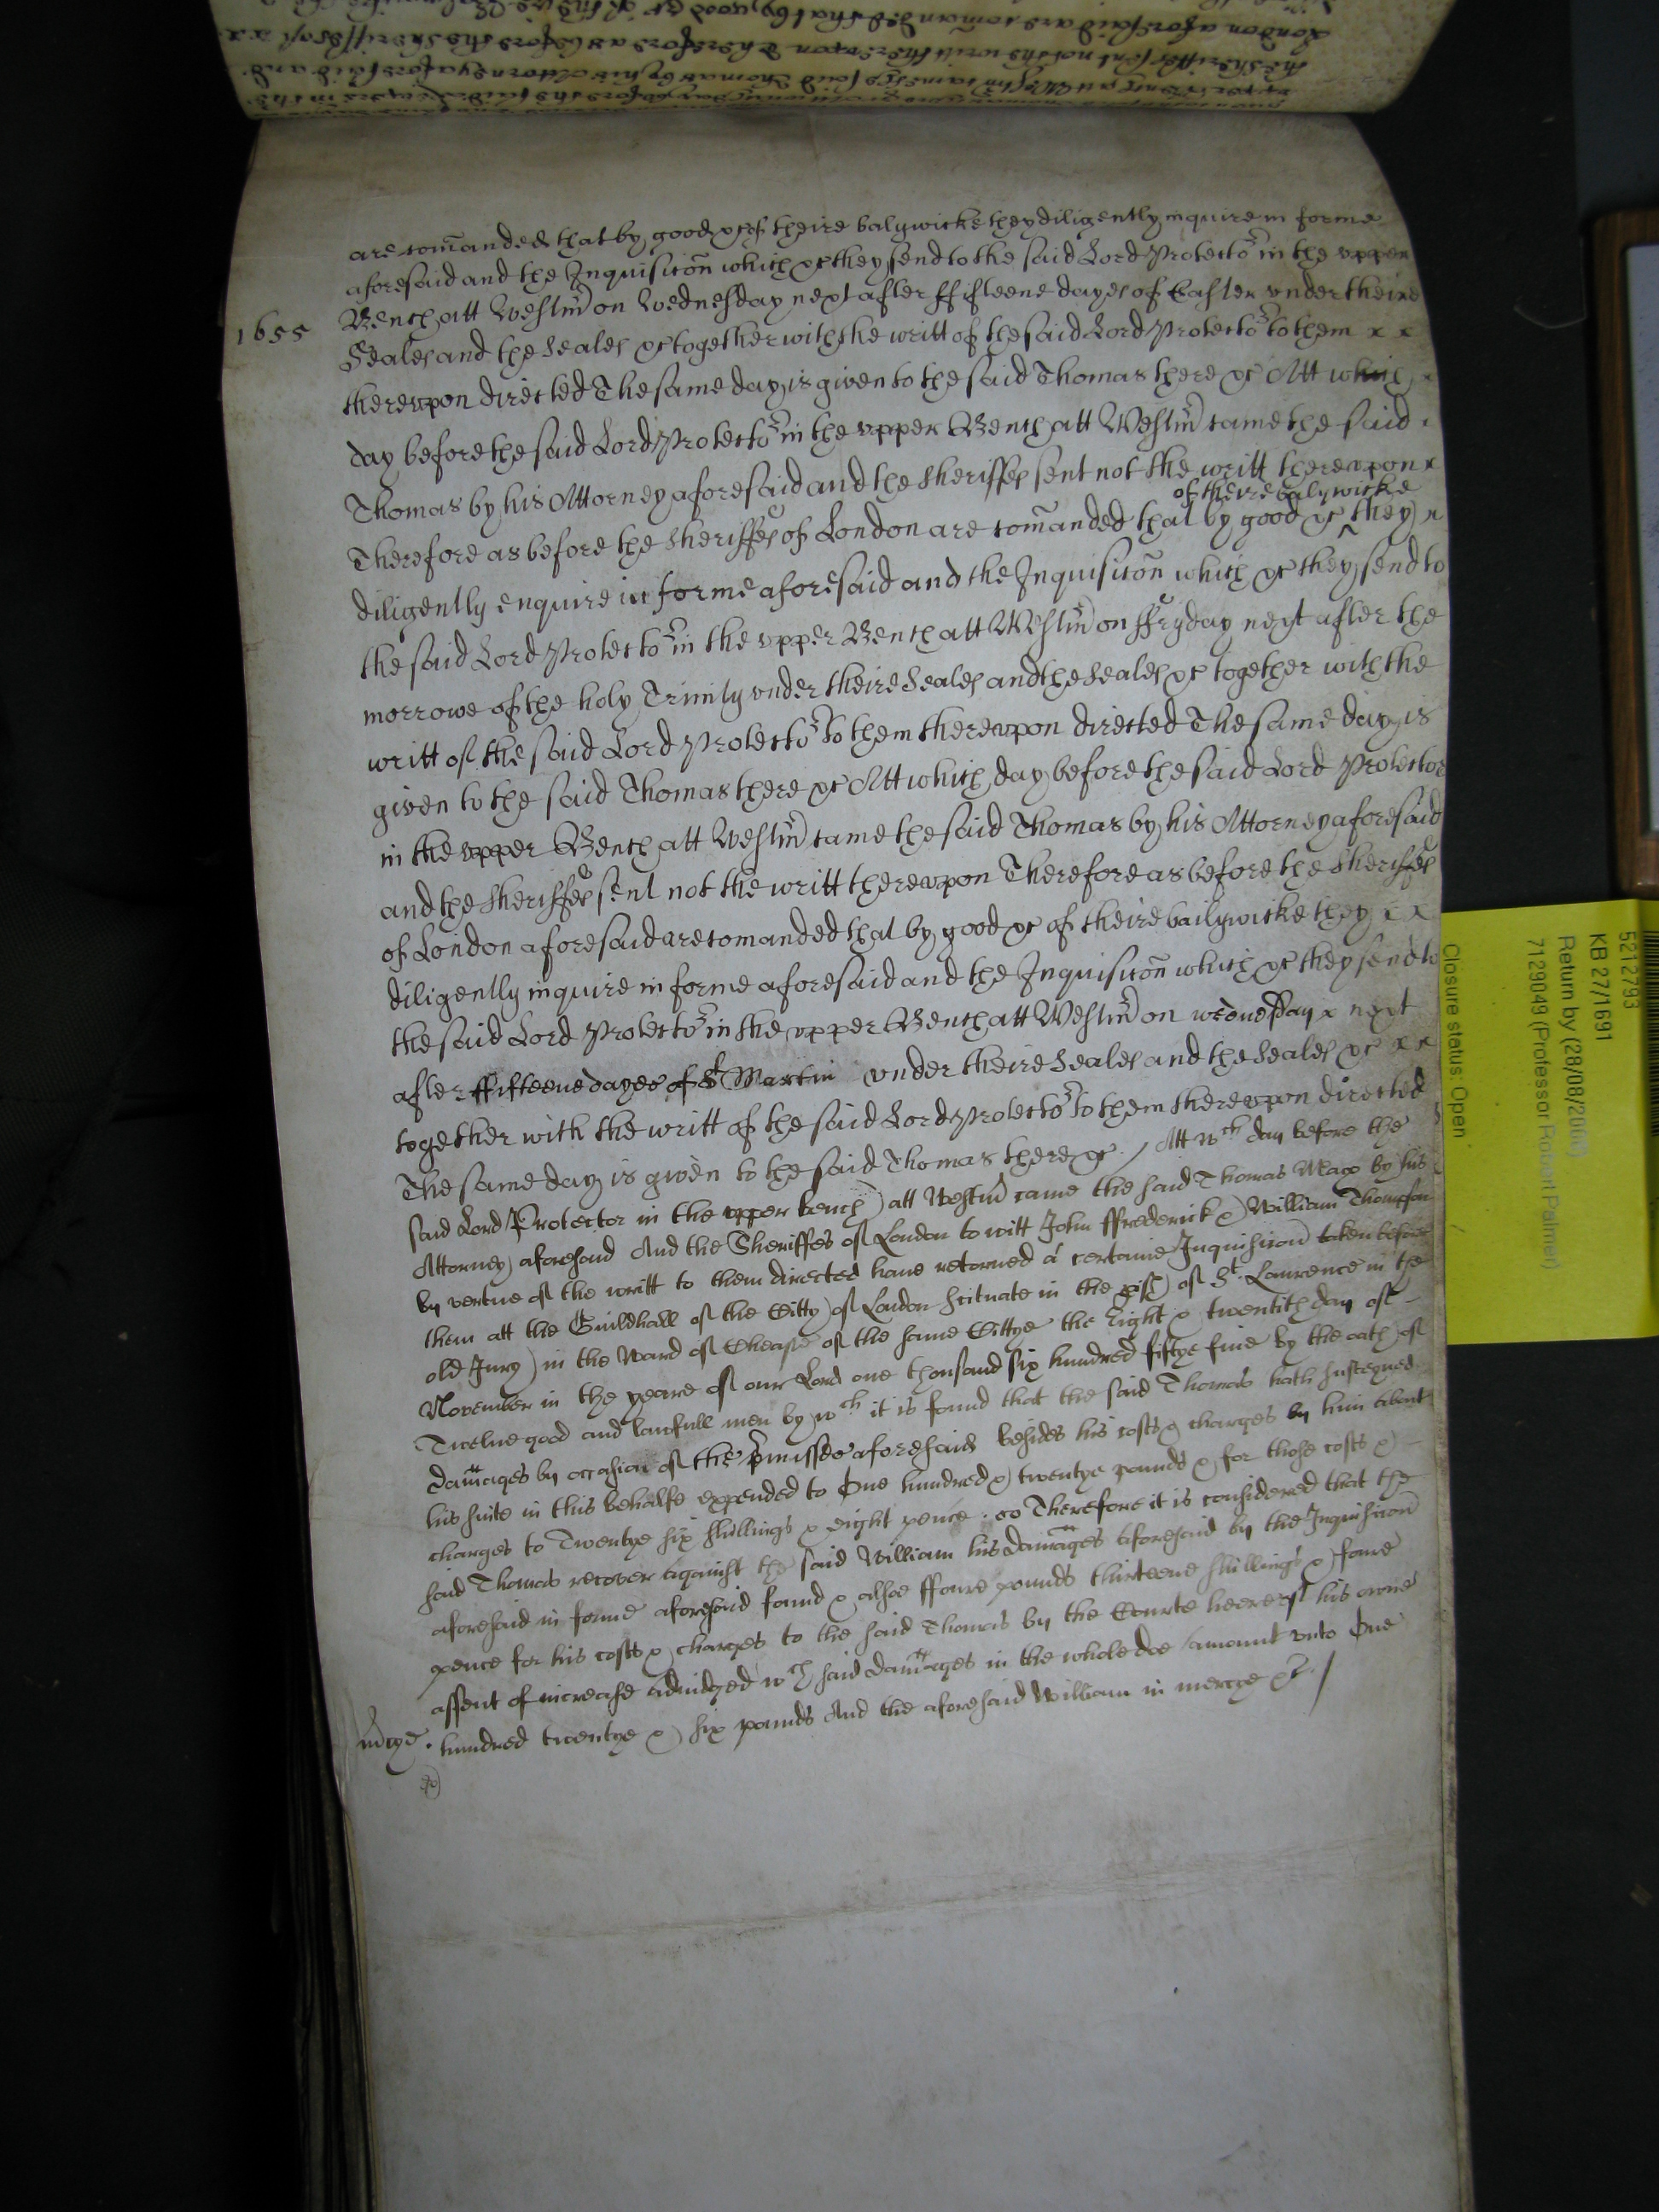 London aforesaid are comanded that by good &c of theire
the Sheriffes sent not the writt thereupon Therefore as before the Sheriffes of x x
upper Bench att Westm came the said Thomas by his Attorney aforesaid and
are comanded that by good &c of theire balywicke they diligently inquire in forme
aforesaid and the Inquisicon which &c they send to the said Lord Protector in the upper
Bench att Westm on Wednesday next after ffifteene dayes of Easter under theire
1655
Seales and the Seales &c together with the writt of the said Lord Protector to them x x
thereupon directed The same day is given to the said Thomas there &c Att which x
day before the said Lord Protector in the upper Bench att Westm came the said
Thomas by his Attorney aforesaid and the Sheriffes sent not the writt thereupon x
of theire balywicke
Therefore as before the Sheriffes of London are comanded that by good &c ^ they x
diligently enquire in forme aforesaid and the Inquisicon which &c they send to
the said Lord Protector in the upper Bench att Westm on ffryday next after the
morrowe of the holy Trinity under theire Seales and the Seales &c together with the
writt of the said Lord Protector to them thereupon directed The same day is
given to the said Thomas there &c Att which day before the said Lord Protector
in the upper Bench att Westm came the said Thomas by his Attorney aforesaid
and the Sheriffes sent not the writt thereupon Therefore as before the Sheriffes
of London aforesaid are comanded that by good &c of theire bailywicke they x x
diligently inquire in forme aforesaid and the Inquisicon which &c they send to
the said Lord Protector in the upper Bench att Westm on wednesday x next
after ffifteene dayes of St Martin under theire Seales and the Seales &c x x
together with the writt of the said Lord Protector to them thereupon directed
The same day is given to the said Thomas there &c. / Att wch day before the
said Lord Protector in the upper bench att Westm came the said Thomas May by his
Attorney aforesaid And the Sheriffes of London to witt John ffrederick & William Thompson
by vertue of the writt to them directed have retorned a certaine Inquisicon taken before
them att the Guildhall of the Citty of London scituate in the pish of St. Lawrence in the
old Jury in the Ward of Cheape of the same Cittye the Eight & twentith day of
November in the yeare of our Lord one thousand six hundred fiftye five by the oath of
Twelve good and lawfull men by wch it is found that the said Thomas hath susteyned
damages by occasion of the pmisses aforesaid besides his costs & charges by him about
his suite in this behalfe expended to One hundred & twentye pounds & for those costs &
charges to Twentye six shillings & eight pence. Therefore it is considered that the
said Thomas recover against the said William his damages aforesaid by the Inquisicon
aforesaid in forme aforesaid found & alsoe ffoure pounds thirteene shillings & foure
pence for his costs & charges to the said Thomas by the Courte heere of his owne
assent of increase adiudged wch said damages in the whole doe amount unto One
mercye. hundred twentye & six pounds And the aforesaid William in mercye &c. /
5212793
KB 27/1691
Return by (28/08/2009)
7129049 (Professor Robert Palmer)
Closure status: Open